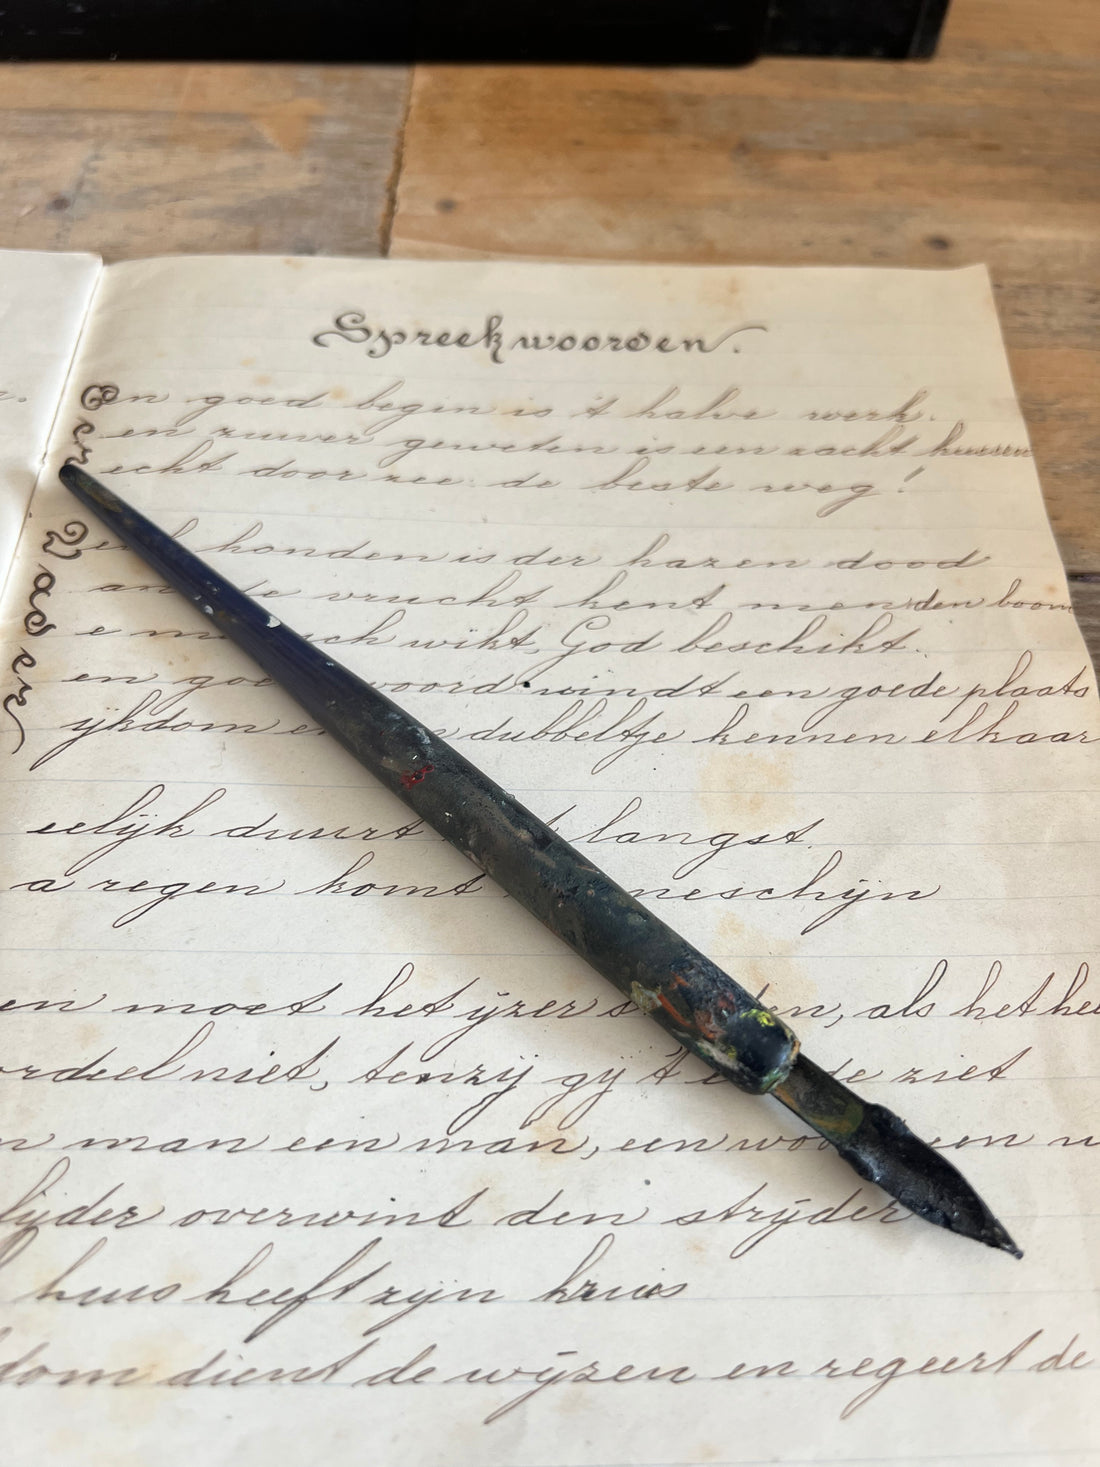 Spreekwoorden.
Een goed begin is 't halve werk.
en zuiver geweten is een zacht kussen
echt door zee de beste weg!
Veel honden is der hazen dood
an de vrucht kent men den boom
e mensch wikt, God beschikt.
en goed woord vindt een goede plaats
ijkdom en dubbeltje kennen elkaar
eelijk duurt 't langst.
a regen komt neschijn
en moet het ijzer s en, als het hee
ordeel niet, tenzij gij 't e de ziet
n man een man, een woo een w
lijder overwint den strijder
huis heeft zijn kruis
dom dient de wijzen en regeert de
Eer
Vader